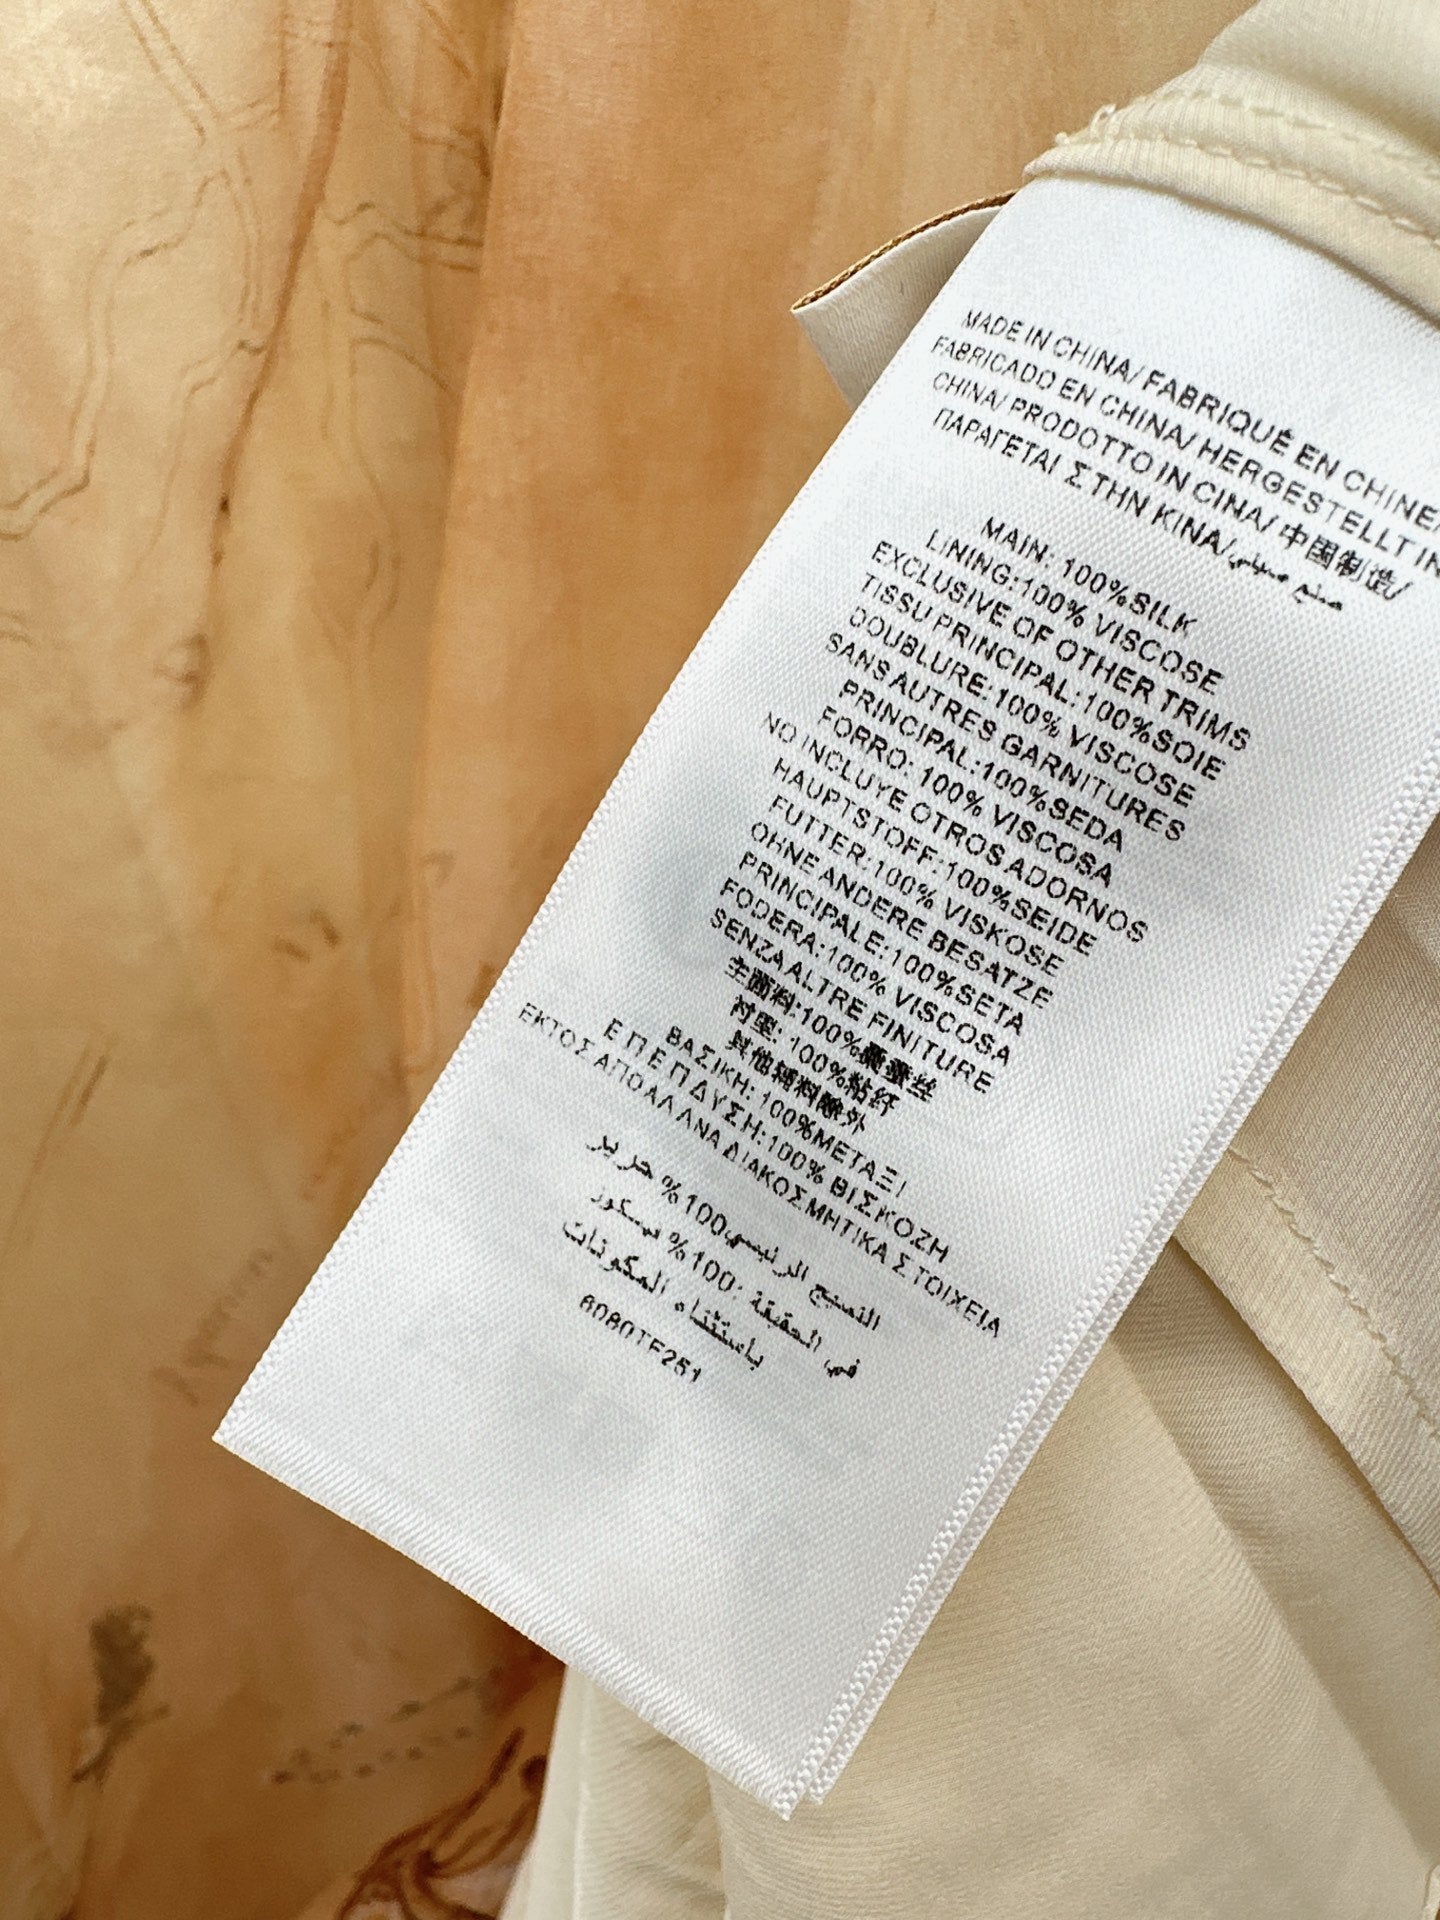 MADE IN CHINA/ FABRIQUÉ EN CHINE/
FABRICADO EN CHINA/ HERGESTELLT IN
CHINA/ PRODOTTO IN CINA/ 中国制造/
ΠΑΡΑΓΕΤΑΙ ΣΤΗΝ ΚΙΝΑ/صنع صيني
MAIN: 100%SILK
LINING:100% VISCOSE
EXCLUSIVE OF OTHER TRIMS
TISSU PRINCIPAL:100%SOIE
DOUBLURE:100% VISCOSE
SANS AUTRES GARNITURES
PRINCIPAL:100%SEDA
FORRO: 100% VISCOSA
NO INCLUYE OTROS ADORNOS
HAUPTSTOFF:100%SEIDE
FUTTER:100% VISKOSE
OHNE ANDERE BESATZE
PRINCIPALE:100%SETA
FODERA:100% VISCOSA
SENZA ALTRE FINITURE
主面料:100%桑蚕丝
衬里: 100%粘纤
其他辅料除外
ΒΑΣΙΚΗ: 100%ΜΕΤΑΞΙ
ΕΠΕΠΔΥΣΗ:100% ΒΙΣΚΟΖΗ
ΕΚΤΟΣ ΑΠΟ ΑΛΛΝΑ ΔΙΑΚΟΣΜΗΤΙΚΑ ΣΤΟΙΧΕΙΑ
النسيج الرئيسي100% حرير
في الحقيقة :100% فيسكوز
باستثناء المكونات
6080TF251